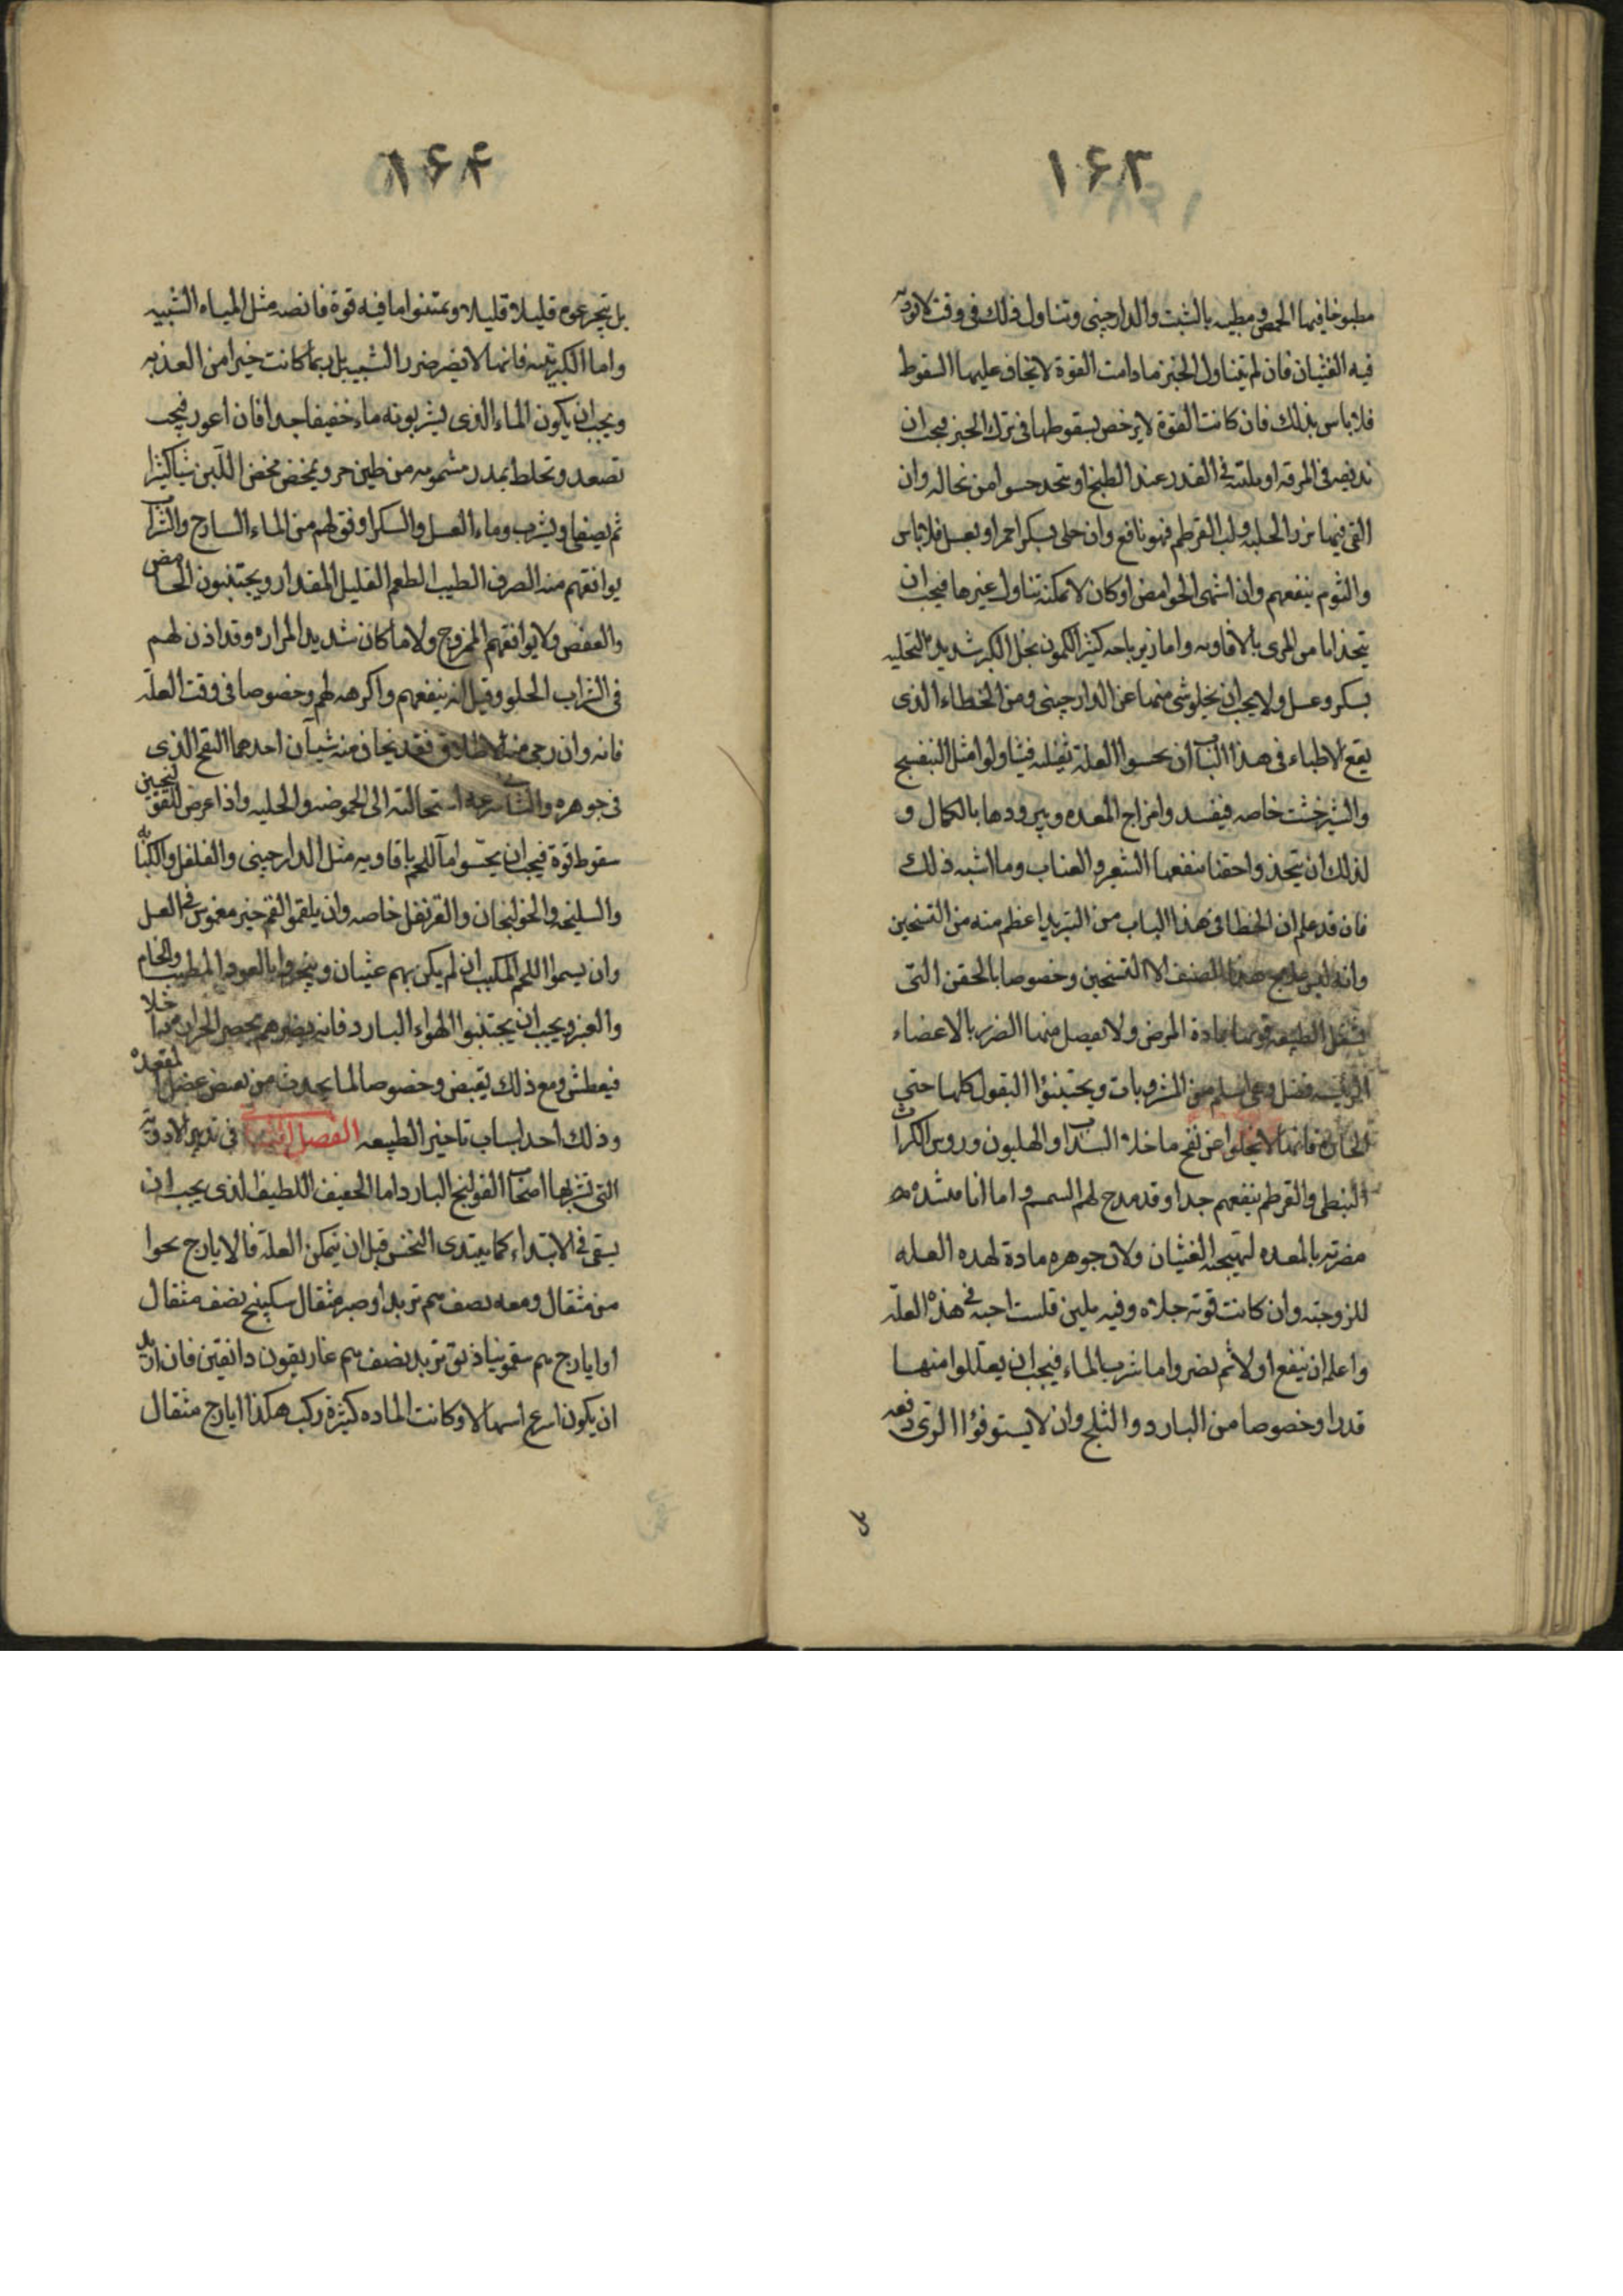 ۱۶۳
مطبوخا فيها الحمص و مطيبه بالشبت والدارجينى وتناول ذلك فى وقت لا توديه
فيه الغثيان فان لم يتناول الخبز ما دامت القوة لا يخاف عليها السقوط
فلا باس بذلك فان كانت القوة لا يرخص بسقوطها فى ترك الخبز فيجب ان
نديفه فى المرقه او يلته فى القدر عند الطبخ او يتخد حسوا من نخاله وان
القى فيها بزر الحلبه ولب القرطم فهو نافع وان حلى بسكر احمر او بعسل فلا باس
والثوم ينفعهم وان اشتهى الحوامض او كان لا يمكنه تناول غيرها فيجب ان
يتخذ اما من المرى بالافاويه واما زيرباجه كثير الكمون بخل الكبر شديد التحليه
بسكر وعسل ولا يجب ان يخلو شى منهما عن الدارجينى ومن الخطاء الذى
يقع للاطباء فى هذا الباب ان يحسوا العلة ثقيله فيناولوا مثل البنفسج
والشيرخشت خاصه فيفسدوا مزاج المعده ويبرودها بالكمال و
لذلك ان يتخذوا حقنا ينفعها الشعير والعناب وما اشبه ذلك
فان قد علم ان الخطا فى هذا الباب من التبريد اعظم منه من التسخين
وانه ليس علاج هذا الصنف الا التسخين وخصوصا بالحقن التى
الطبيعه قوتها مادة المرض ولا يصل منها الضرر بالاعضاء
الرئيسه فضل وهى اسلم من المشروبات ويجتنبوا البقول كلها حتى
الحاره فانها لا يخلوا عن نفخ ما خلا السداب والهليون وروس الكراث
النبطى والقرطم ينفعهم جدا وقد مدح لهم السمسم واما انا
مضرته بالمعده لتهييجه الغثيان ولان جوهره مادة لهده العله
للزوجته وان كانت قوته جلاه وفيه يلين قلست احبه فى هذه العلة
واعلم ان ينفع اولا ثم يضر واما شرب الماء فيجب ان يقللوا منها
قدرا وخصوصا من البارد والثلج وان لا يستوفوا الرى دفعه
بل
۱۶۴
بل يتجرعوه قليلا قليلا ويمتنوا ما فيه قوة قابضه مثل المياه الشبيه
واما الكبريتيه فانها لا يضر ضرر الشبيه بل ربما كانت خيرا من العذبه
ويجب ان يكون الماء الذى يشربونه ماء خفيفا جدا فان اعور فيجب
تصعد وتخلط بمدر مشمومه من طين حر ويمخض مخض اللبن شيا كثيرا
ثم يصفى ويشرب وماء العسل والسكر اوفق لهم من الماء الساذج والشراب
يوافقهم منه الصرف الطيب الطعم القليل المقدار ويجتنبون الحامض
والعفص ولا يوافقهم الممزوج ولا ما كان شديد المراره وقد اذن لهم
فى الشراب الحلو وقيل انه ينفعهم واكرهه لهم وخصوصا فى وقت العلة
فانه وان رجى منه الاطلاق فقد يخاف منه شيآن احدهما النفخ الذى
فى جوهره والثانى سرعه استحالته الى الحموضه والحليه واذا عرض للقولنجين
سقوط قوة فيجب ان يحسوا ماء اللحم بافاويه مثل الدارجينى والفلفل والكبابه
والسليخه والخولنجان والقرنفل خاصه وان يلقموا لقم خبز مغموس فى العسل
وان يسموا اللحم المكبب ان لم يكن بهم غثيان ويتبخروا بالعود المطيب والخام
والعنبر ويجب ان يجتنبوا الهواء البارد فانه يضرهم بحصر الحرارة داخلا
فيعطش ومع ذلك يقبض وخصوصا لما يحدث من بعض عضل المقعده
وذلك احد اسباب تاخير الطبيعه الفصل الثامن فى تدبير الادويه
التى تشربها اصحاب القولنج البارد اما الخفيف اللطيف الذى يجب ان
يسقى فى الابتداء كما يبتدى النخس قبل ان يتمكن العلة فالايارج نحوا
من مثقال ومعه نصف سهم تربد او صبر مثقال سكبينج نصف مثقال
او ايارج سهم سقمونيا تربد نصف سهم غاريقون دانقين فان اريد
ان يكون اسرع اسهالا وكانت الماده كثيرة ركب هكذا ايارج مثقال